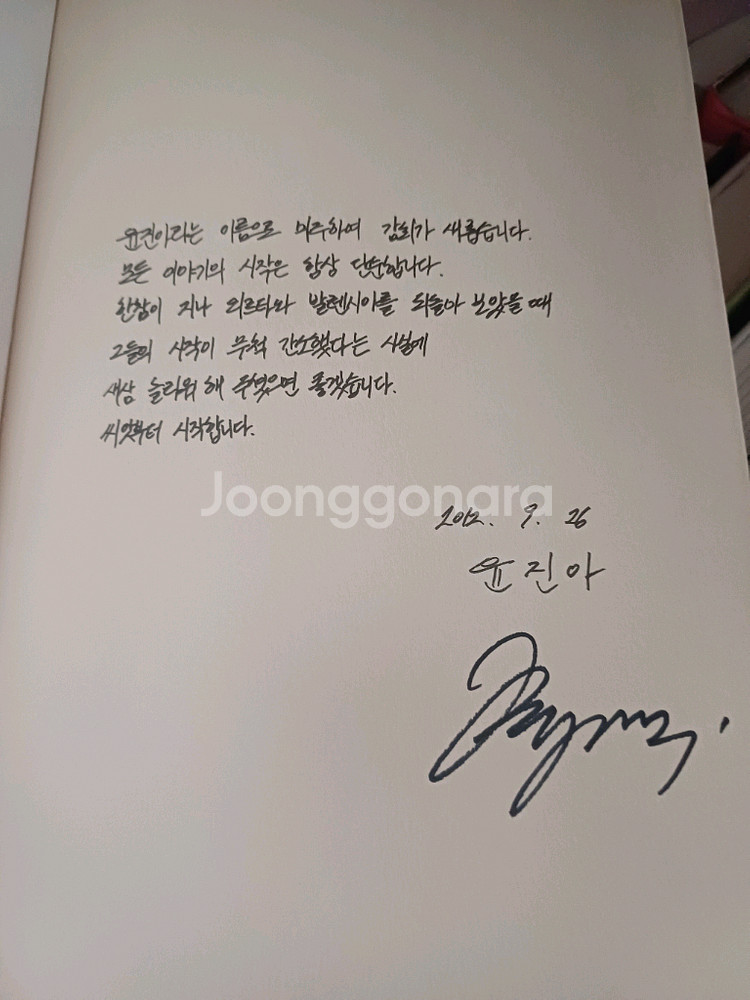 윤진아라는 이름으로 마주하여 감회가 새롭습니다.
모든 이야기의 시작은 항상 단순합니다.
한참이 지나 외르타와 발렌시아를 되돌아 보았을 때
그들의 시작이 무척 간소했다는 사실에
새삼 놀라워 해 주셨으면 좋겠습니다.
씨앗부터 시작합니다.
Joonggonara
2012. 9. 26
윤진아